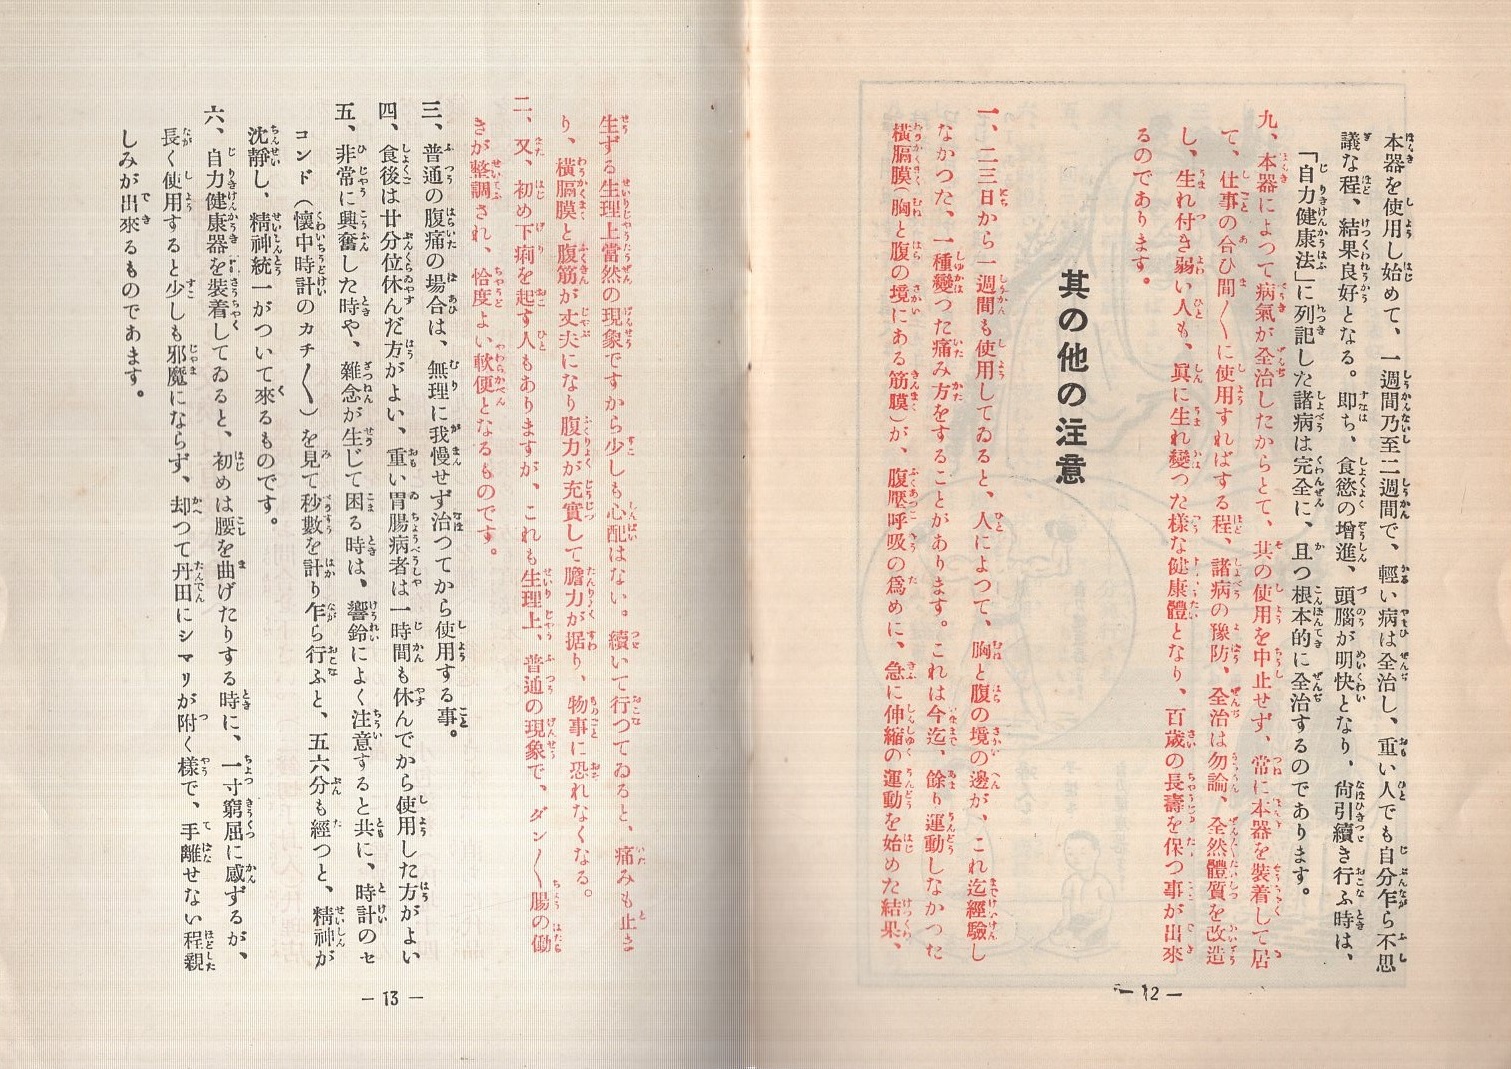 本器を使用し始めて、一週間乃至二週間で、輕い病は全治し、重い人でも自分乍ら不思
議な程、結果良好となる。卽ち、食慾の增進、頭腦が明快となり、尙引續き行ふ時は、
「自力健康法」に列記した諸病は完全に、且つ根本的に全治するのであります。
九、本器によつて病氣が全治したからとて、其の使用を中止せず、常に本器を裝着して居
て、仕事の合ひ間〳〵に使用すればする程、諸病の豫防、全治は勿論、全然體質を改造
し、生れ付き弱い人も、眞に生れ變つた樣な健康體となり、百歲の長壽を保つ事が出來
るのであります。
其の他の注意
一、二三日から一週間も使用してゐると、人によつて、胸と腹の境の邊が、これ迄經驗し
なかつた、一種變つた痛み方をすることがあります。これは今迄、餘り運動しなかつた
橫膈膜(胸と腹の境にある筋膜)が、腹壓呼吸の爲めに、急に伸縮の運動を始めた結果、
— 12 —
生ずる生理上當然の現象ですから少しも心配はない。續いて行つてゐると、痛みも止ま
り、橫膈膜と腹筋が丈夫になり腹力が充實して膽力が据り、物事に恐れなくなる。
二、又、初め下痢を起す人もありますが、これも生理上、普通の現象で、ダン〳〵腸の働
きが整調され、恰度よい軟便となるものです。
三、普通の腹痛の場合は、無理に我慢せず治つてから使用する事。
四、食後は廿分位休んだ方がよい、重い胃腸病者は一時間も休んでから使用した方がよい
五、非常に興奮した時や、雜念が生じて困る時は、響鈴によく注意すると共に、時計のセ
コンド(懷中時計のカチ〳〵)を見て秒數を計り乍ら行ふと、五六分も經つと、精神が
沈靜し、精神統一がついて來るものです。
六、自力健康器を裝着してゐると、初めは腰を曲げたりする時に、一寸窮屈に感ずるが、
長く使用すると少しも邪魔にならず、却つて丹田にシマリが附く樣で、手離せない程親
しみが出來るものであます。
— 13 —